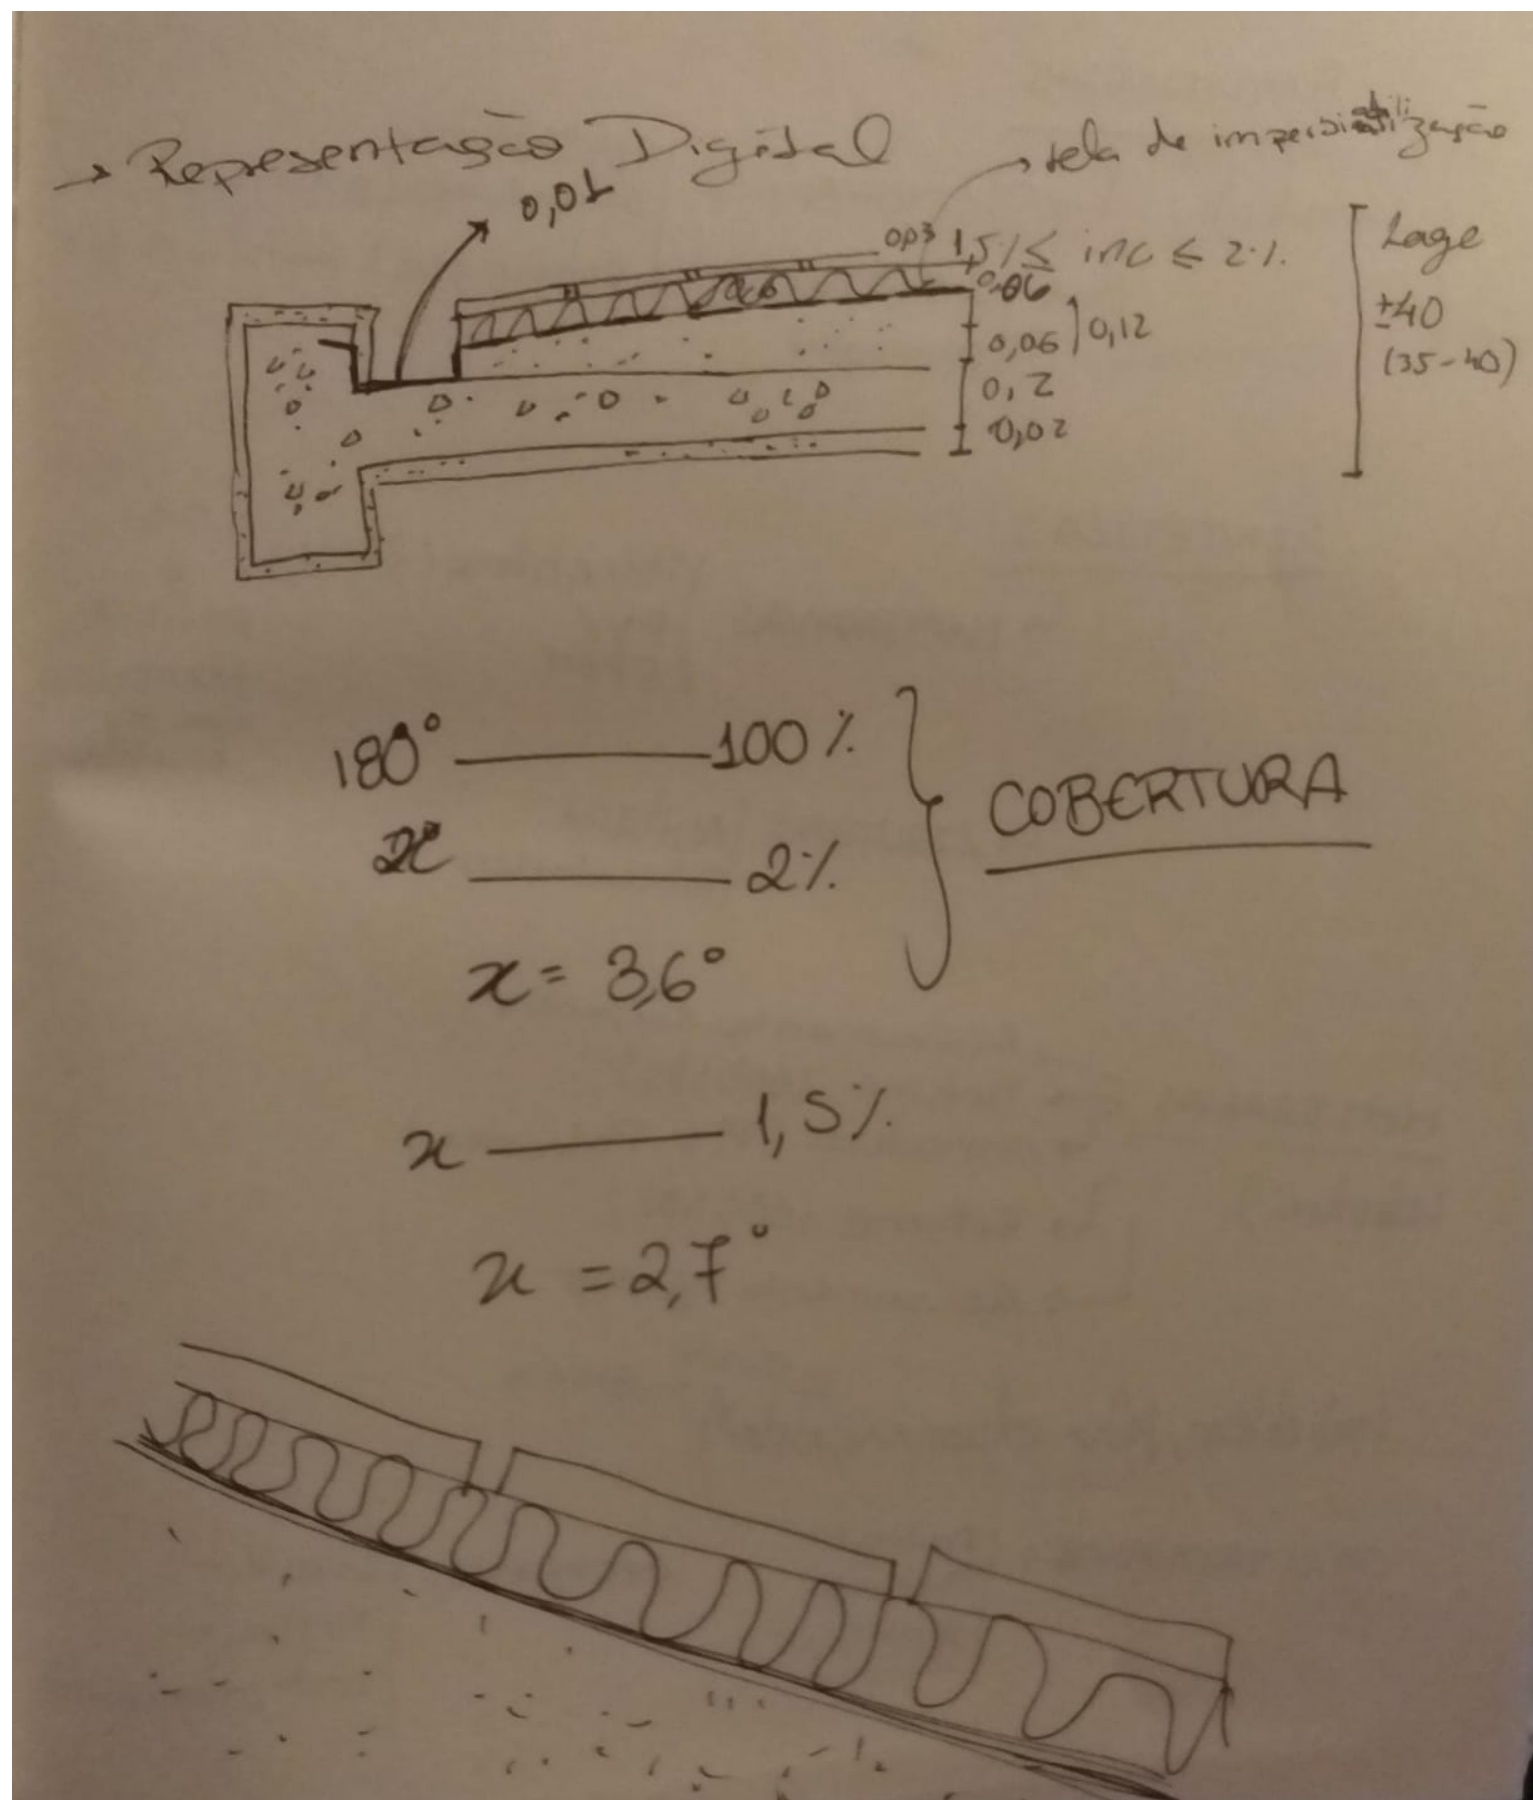 → Representação Digital
→ tela de impermibilização
0,01
0,03 1,5% ≤ inc ≤ 2%
0,06
0,06 } 0,12
0,2
0,02
Lage
±40
(35-40)
180° ——— 100%
x ——— 2%
x = 3,6°
COBERTURA
x ——— 1,5%
x = 2,7°